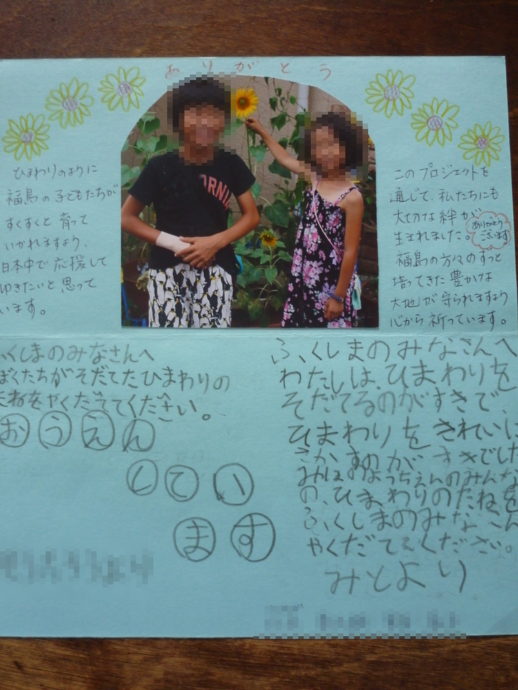 ありがとう
ひまわりのように
福島の子どもたちが
すくすくと育って
いかれますよう、
日本中で応援して
ゆきたいと思って
います。
このプロジェクトを
通じて、私たちにも
大切な絆が
生まれました。
ありがとう
ございます
福島の方々のずっと
培ってきた豊かな
大地が守られますよう
心から祈っています。
ふくしまのみなさんへ
ぼくたちがそだてたひまわりの
たねをやくだててください。
おうえん
してい
ます
ふくしまのみなさんへ
わたしは、ひまわりを
そだてるのがすきで、
ひまわりをきれいに
さかすのがすきでした
のみんな
の、ひまわりのたねを
ふくしまのみなさん
やくだててください。
みとより